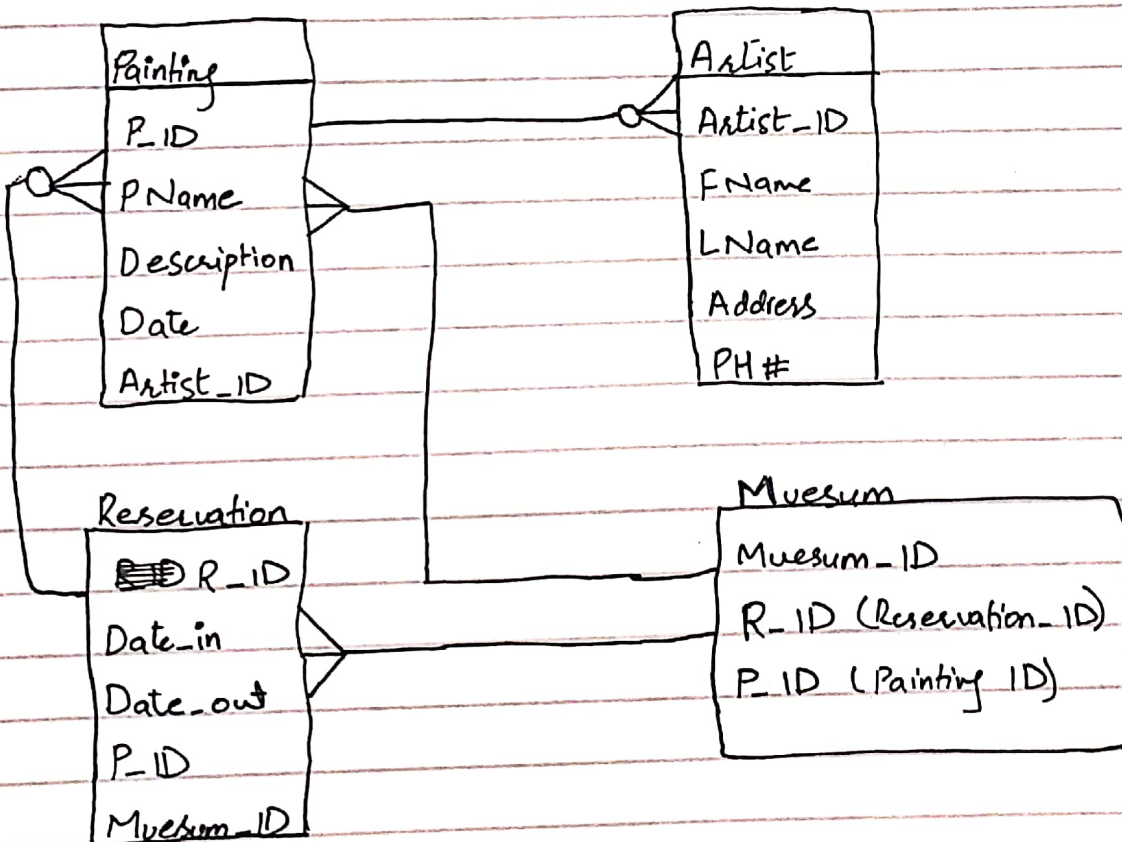 Painting
P_ID
PName
Description
Date
Artist_ID
Artist
Artist_ID
FName
LName
Address
PH#
Reservation
R_ID
Date_in
Date_out
P_ID
Muesum_ID
Muesum
Muesum_ID
R_ID (Reservation_ID)
P_ID (Painting ID)